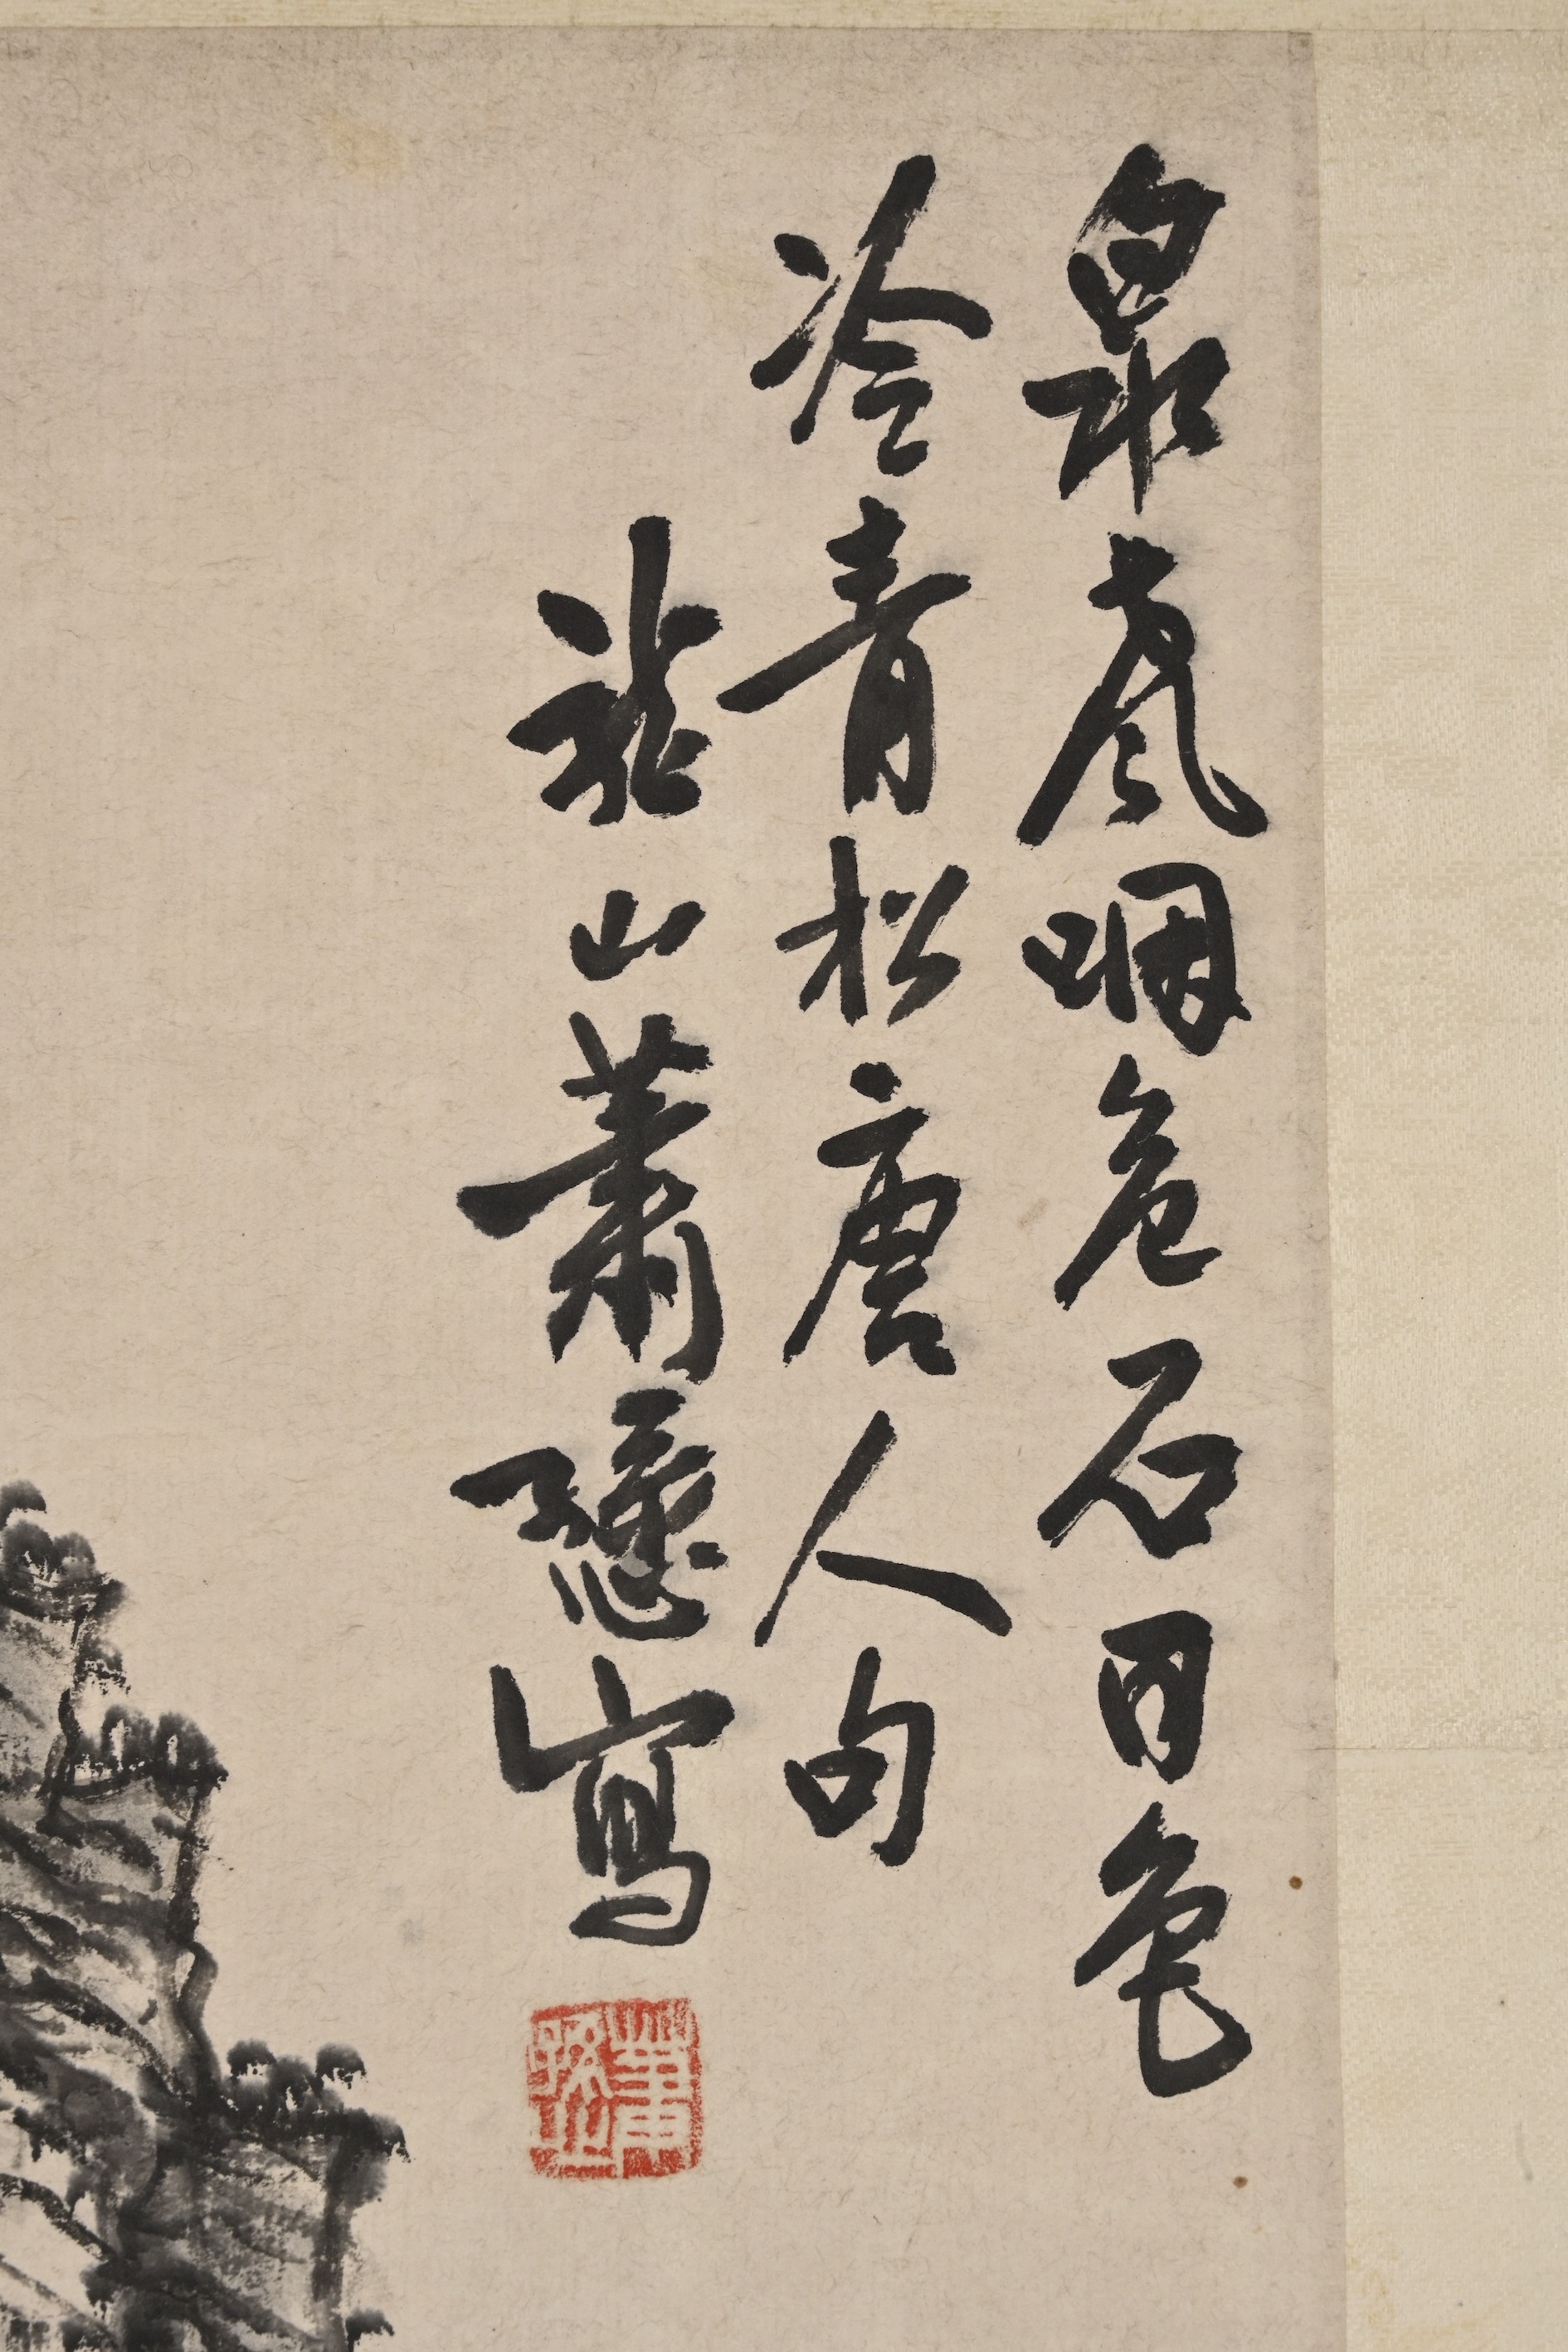 泉聲咽危石日色
冷青松唐人句
龍山蕭愻寫
蕭愻